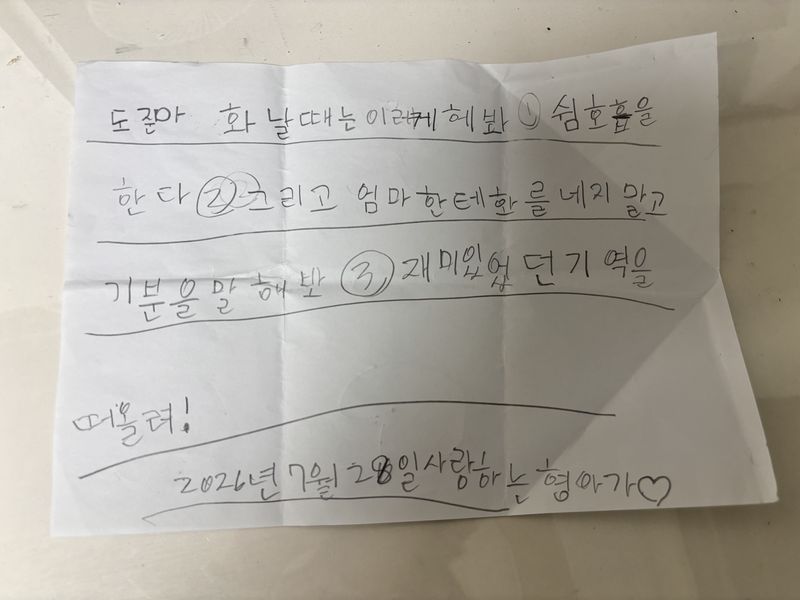 도준아 화 날때는이렇케해봐 ① 쉼호흡을
한다 ② 그리고 엄마한테화를 네지 말고
기분을말해봐 ③ 재미있었던기역을
떠올려!
2026년 7월 28일사랑하는 형아가♡